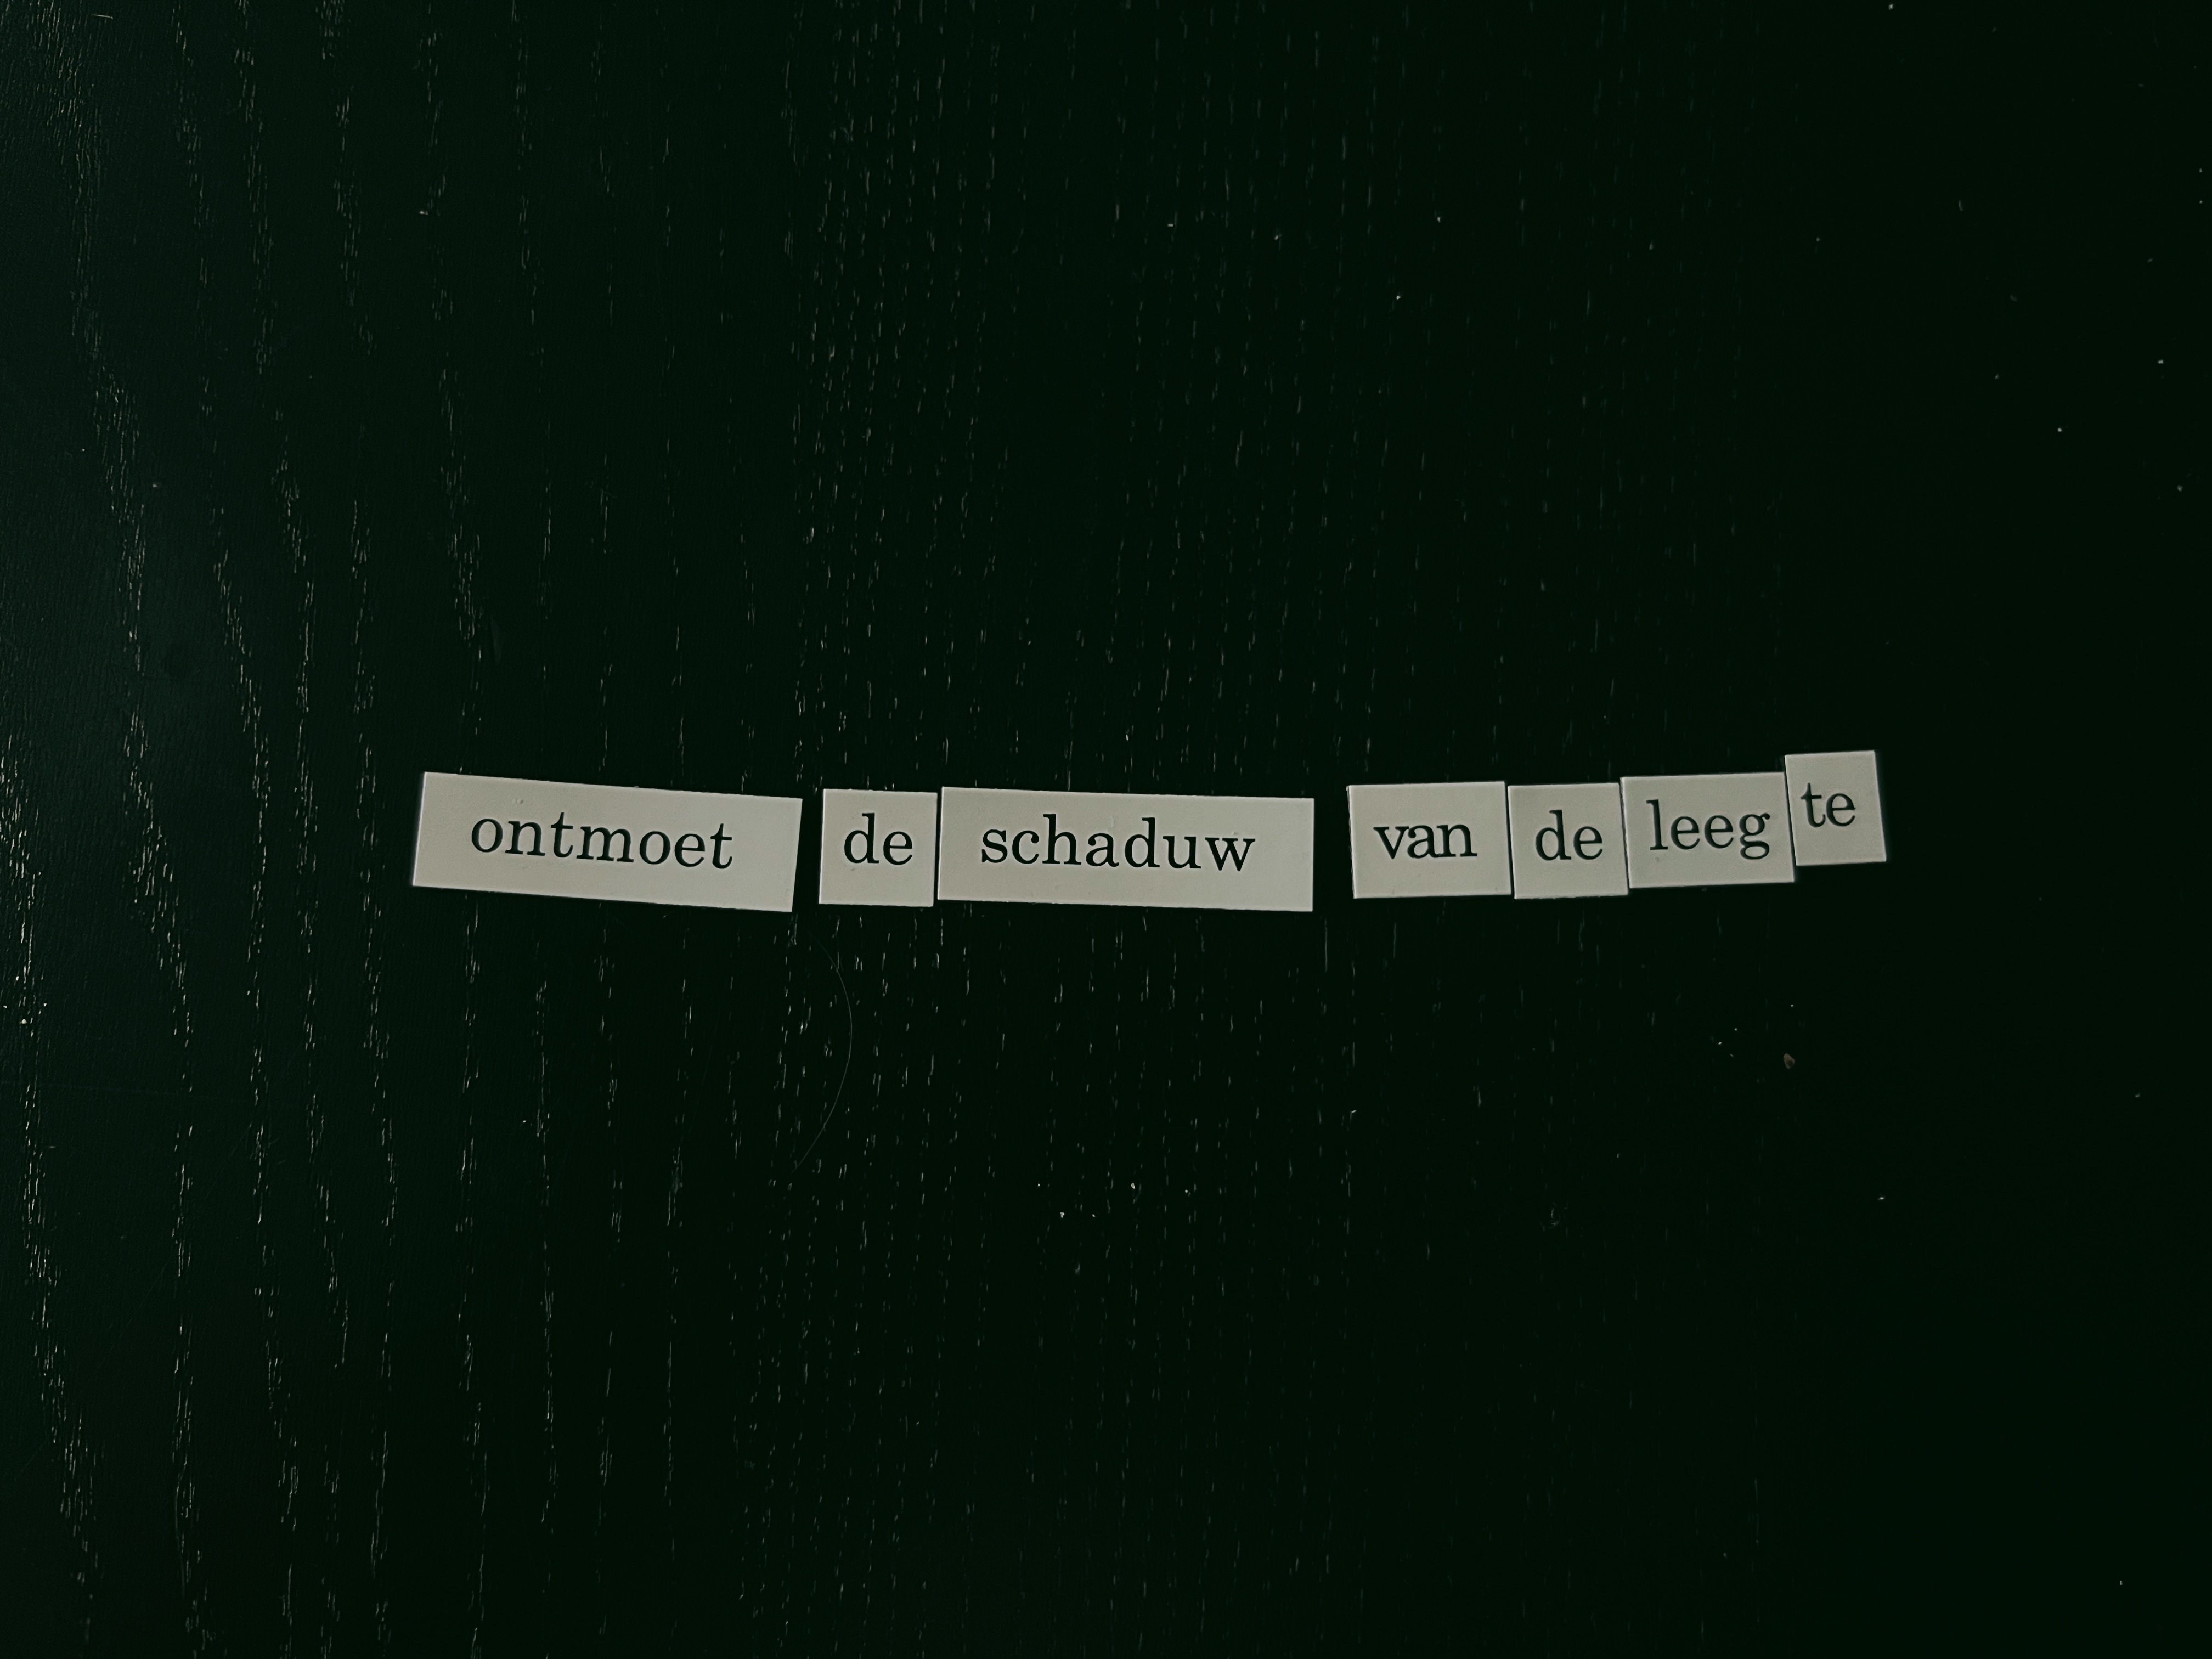 ontmoet de schaduw van de leeg te